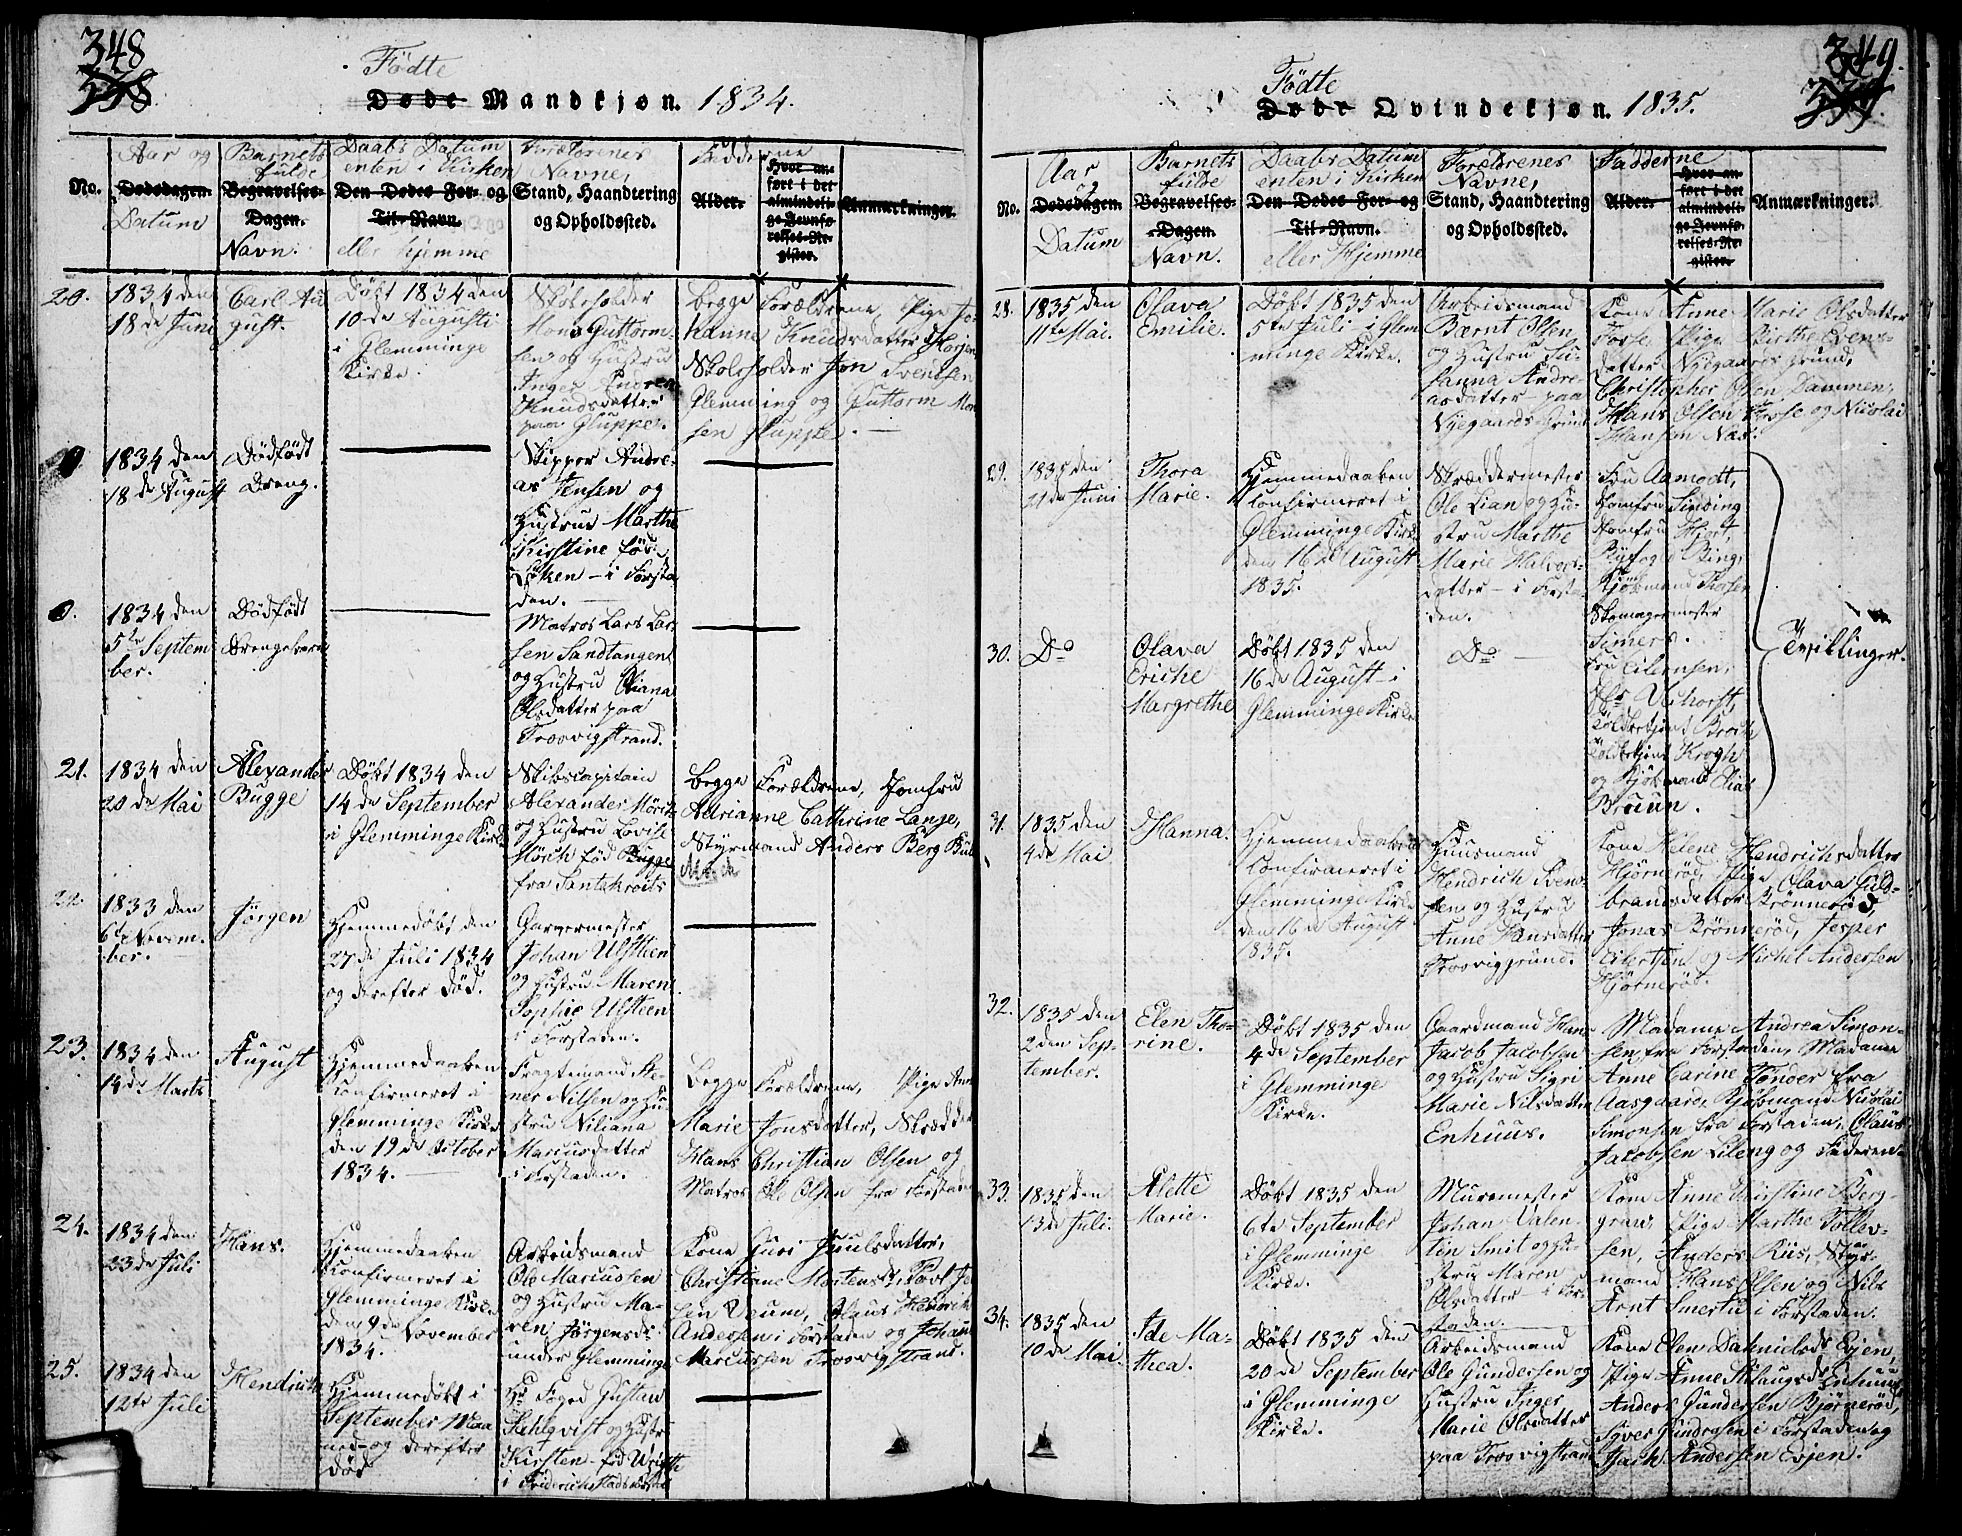 348
338
Födte
Døde Mandkjøn. 1834.
No.
Aar og
Dødsdagen.
Datum
Barnets
fulde
Begravelses-
Dagen.
Navn.
Daabs Datum
enten i Kirken
Den Dødes For- og
Til-Navn.
eller hjemme
Forældrenes
Navne,
Stand, Haandtering
og Opholdssted.
Fadderne
Alder.
Hvor an-
ført i det
almindeli-
ge Jevnfø-
relses-Re-
gister.
Anmærkninger.
20.
1834 den
18de Juni
Carl Au
gust.
Døbt 1834 den
10de Augusti
i Glemminge
Kirke.
Skoleholder
Mons Guttorm-
sen og Hustru
Inger Andrea
Knudsdatter
paa Gluppe.
Begge Forældrene, Pige Jo
hanne Knudsdatter
Skoleholder Jon Svendsen
Glemming og Guttorm Mon
sen Gluppe.
0
1834 den
18de August
Dødfødt
Dreng.
Skipper Andre-
as Jensen og
Hustrue Marthe
Kirstine fød
Løken - i Forsta
den.
0.
1834 den
5te Septem
ber.
Dødfødt
Drengebarn
Matros Lars Lar
sen Sandtangen
og Hustru Oliana
Olsdatter paa
Troovigstrand.
21.
1834 den
20de Mai
Alexander
Bugge
Døbt 1834 den
14de September
i Glemminge Kirke
Skibscapitain
Alexander Mörch
og Hustru Lovise
Mörch fød Bugge
fra
Begge Forældrene, Jomfru
Adrianne Cathrine Lange,
Styrmand Anders Berg
22.
1833 den
6te Novem-
ber.
Jörgen
Hjemmedøbt den
27de Juli 1834
og derefter død.
Garvermester
Johan Ulsteen
og Hustru Maren
Sophie Ulsteen
i Forstaden.
23.
1834 den
14de Marts
August
Hjemmedaaben
Confirmeret i
Glemminge Kirke
den 19de October
1834.
Fragtemand Ste-
ner Nilsen og Hu-
stru Niliana
Marcusdatter
i Forstaden.
Begge Forældrene, Pige Ann
Marie Jonsdatter, Skrædder
Hans Christian Olsen og
Matros Ole Olsen fra Forstaden
24.
1834 den
23de Juli
Hans.
Hjemmedaaben
Confirmeret i
Glemminge Kirke
den 9de November
1834.
Arbeidsmand
Ole Marcussen
og Hustru Ma-
ren Jörgensd:
under Glemminge
Kone Guri Juulsdatter,
Christiane Mortensd:,
Olaus Henrik
Andersen i Forstaden og Johan
Marcussen Troovigstrand.
25.
1834 den
12te Juli
Hendrich
Hjemmedøbt i
September Maa
ned og derefter
død
Hr Foged Gustav
og Hustr
Kirsten fød
i Friderichstads
349.
339
Födte
Døde Qvindekjøn. 1835.
No.
Aar
og
Dødsdagen.
Datum
Barnets
fulde
Begravelses-
Dagen.
Navn.
Daabs Datum
enten i Kirken
Den Dødes For- og
Til-Navn.
eller Hjemme
Forældrenes
Navne,
Stand, Haandtering
og Opholdssted.
Fadderne
Alder.
Hvor an-
ført i det
almindeli-
ge Jevnfø-
relses-Re-
gister.
Anmærkninger.
28.
1835 den
11te Mai.
Olava
Emilie.
Døbt 1835 den
5te Juli i Glem
minge Kirke.
Arbeidsmand
Bernt Olsen
og Hustru Su-
sanna Andre-
asdatter paa
Nyegaards Grund
Kone Anne Marie Olsdatter
Fosse, Pige Birthe Svens-
datter Nygaards grund,
Christopher Olsen Dammen,
Hans Olsen Fosse og Nicolai
Hansen Næs.
29.
1835 den
21de Juni
Thora
Marie.
Hjemmedaaben
Confirmeret i
Glemminge Kirke
den 16de August
1835.
Skræddermester
Ole Lian og Hu-
stru Marthe
Marie Halvors-
datter - i Forsta-
den.
Fru Aamodt,
Jomfru Sinding
Jomfru Hjort,
Byfoged Bing,
Kjöbmand Thorsen
Skomagermester
Simers.
30.
Do
Olava
Eriche
Margrethe
Døbt 1835 den
16de August i
Glemminge Kirke
Do
Fru Eilertsen,
Toldbetjent Krogh
og Kjöbmand Elias
Bruun.
Tvillinger.
31.
1835 den
4de Mai
Hanna.
Hjemmedaaben
Confirmeret i
Glemminge Kirke
den 16de August
1835.
Huusmand
Hendrich Svend-
sen og Hustru
Anne Hansdatter
Troovig grund.
Kone Helene Hendrichsdatter
Hjørnerød, Pige Olava Guld-
brandsdatter Brönnerød,
Jonas Brönnerød, Jesper
Eilertsen og Michel Andersen
Hjørnerød.
32.
1835 den
2den Sep-
tember.
Elen Tho-
rine.
Døbt 1835 den
4de September
i Glemminge
Kirke.
Gaardmand Hans
Jacob Jacobsen
og Hustru Sigri
Marie Nilsdatter
Enhuus.
Madame Andrea Simon-
sen fra Forstaden, Madame
Anne Carine Tønder fra
Aasgaard, Kjøbmand Nicolai
Simonsen fra Forstaden, Olaus
Jacobsen Lileng og Faderen.
33.
1835 den
13de Juli.
Alette
Marie.
Døbt 1835 den
6te September
i Glemminge
Kirke.
Muremester
Johan Valen-
tin Smit og Hu-
stru Maren
Olsdatter - i For-
staden.
Kone Anne Kirstine Berg-
graw, Pige Marthe Tollev-
sen, Anders Riis, Styr-
mand Hans Olsen og Nils
Arnt Smertu i Forstaden.
34.
1835 den
10de Mai.
Ide Ma-
thea.
Døbt 1835 den
20de September
i Glemminge
Kirke.
Arbeidsmand
Ole Gundersen og
Hustru Inger
Marie Olsdatter
paa Troovigstrand
Kone Elen Dahnielsd: Evjen,
Pige Anne Aslaugsd: Enhuus
Anders Gundersen Bjørnerød,
Syver Gundersen i Forstaden og
Isach Andersen Evjen.